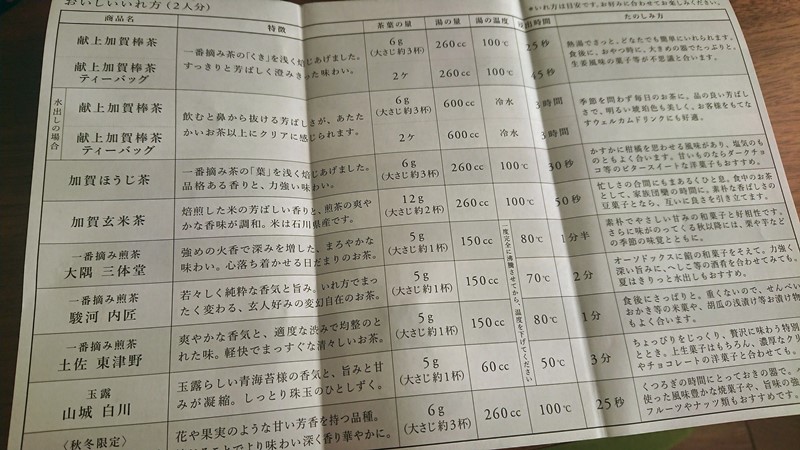 おいしいいれ方（2人分）
＊いれ方は目安です。お好みに合わせてお楽しみください。
商品名 特徴 茶葉の量 湯の量 湯の温度 出時間 たのしみ方
献上加賀棒茶
一番摘み茶の「くき」を浅く焙じあげました。
すっきりと芳ばしく澄みきった味わい。
6g
（大さじ約3杯）
260cc 100℃ 25秒
熱湯でさっと。どなたでも簡単にいれられます。
食後に、おやつ時に、大きめの器でたっぷりと。
生姜風味の菓子等が不思議と合います。
献上加賀棒茶
ティーバッグ
2ケ 260cc 100℃ 45秒
水出しの場合
献上加賀棒茶
飲むと鼻から抜ける芳ばしさが、あたた
かいお茶以上にクリアに感じられます。
6g
（大さじ約3杯）
600cc 冷水 3時間
季節を問わず毎日のお茶に。品の良い芳ばし
さで、明るい琥珀色も美しく、お客様をもてな
すウェルカムドリンクにも好適。
献上加賀棒茶
ティーバッグ
2ケ 600cc 冷水 3時間
加賀ほうじ茶
一番摘み茶の「葉」を浅く焙じあげました。
品格ある香りと、力強い味わい。
6g
（大さじ約3杯）
260cc 100℃ 30秒
かすかに柑橘を思わせる風味があり、塩気のも
のともよく合います。甘いものならダークチョ
コ等のビタースイートな洋菓子もおすすめ。
加賀玄米茶
焙煎した米の芳ばしい香りと、煎茶の爽や
かな香味が調和。米は石川県産です。
12g
（大さじ約2杯）
260cc 100℃ 50秒
忙しさの合間にもまあるくひと息。食中のお茶
として、家族団欒の時間に。素朴な香ばしさの
豆菓子となら、互いに良さを引き立てます。
一度完全に沸騰させてから、温度を下げてください
一番摘み煎茶
大隅 三体堂
強めの火香で深みを増した、まろやかな
味わい。心落ち着かせる日だまりのお茶。
5g
（大さじ約1杯）
150cc 80℃ 1分半
素朴でやさしい旨みの和菓子と好相性です。
さらに味がのってくる秋以降には、栗や芋など
の季節の味覚とともに。
一番摘み煎茶
駿河 内匠
若々しく純粋な香気と旨み。いれ方でまっ
たく変わる、玄人好みの変幻自在のお茶。
5g
（大さじ約1杯）
150cc 70℃ 2分
オーソドックスに餡の和菓子をそえて。力強く
深い旨みに、へしこ等の酒肴を合わせてみても。
夏はきりっと水出しもおすすめ。
一番摘み煎茶
土佐 東津野
爽やかな香気と、適度な渋みで均整のと
れた味。軽快でまっすぐな清々しいお茶。
5g
（大さじ約1杯）
150cc 80℃ 1分
食後にさっぱりと。重くないので、せんべい
おかき等の米菓や、胡瓜の浅漬け等お漬け物
もよく合います。
玉露
山城 白川
玉露らしい青海苔様の香気と、旨みと甘
みが凝縮。しっとり珠玉のひとしずく。
5g
（大さじ約1杯）
60cc 50℃ 3分
ちょっぴりをじっくり、贅沢に味わう特別
ととき。上生菓子はもちろん、濃厚なクリ
やチョコレートの洋菓子と合わせても。
〈秋冬限定〉
花や果実のような甘い芳香を持つ品種。
ことでより味わい深く香り華やかに。
6g
（大さじ約3杯）
260cc 100℃ 25秒
くつろぎの時間にとっておきの器で。
使った風味豊かな焼菓子や、旨味の強
フルーツやナッツ類もおすすめです。